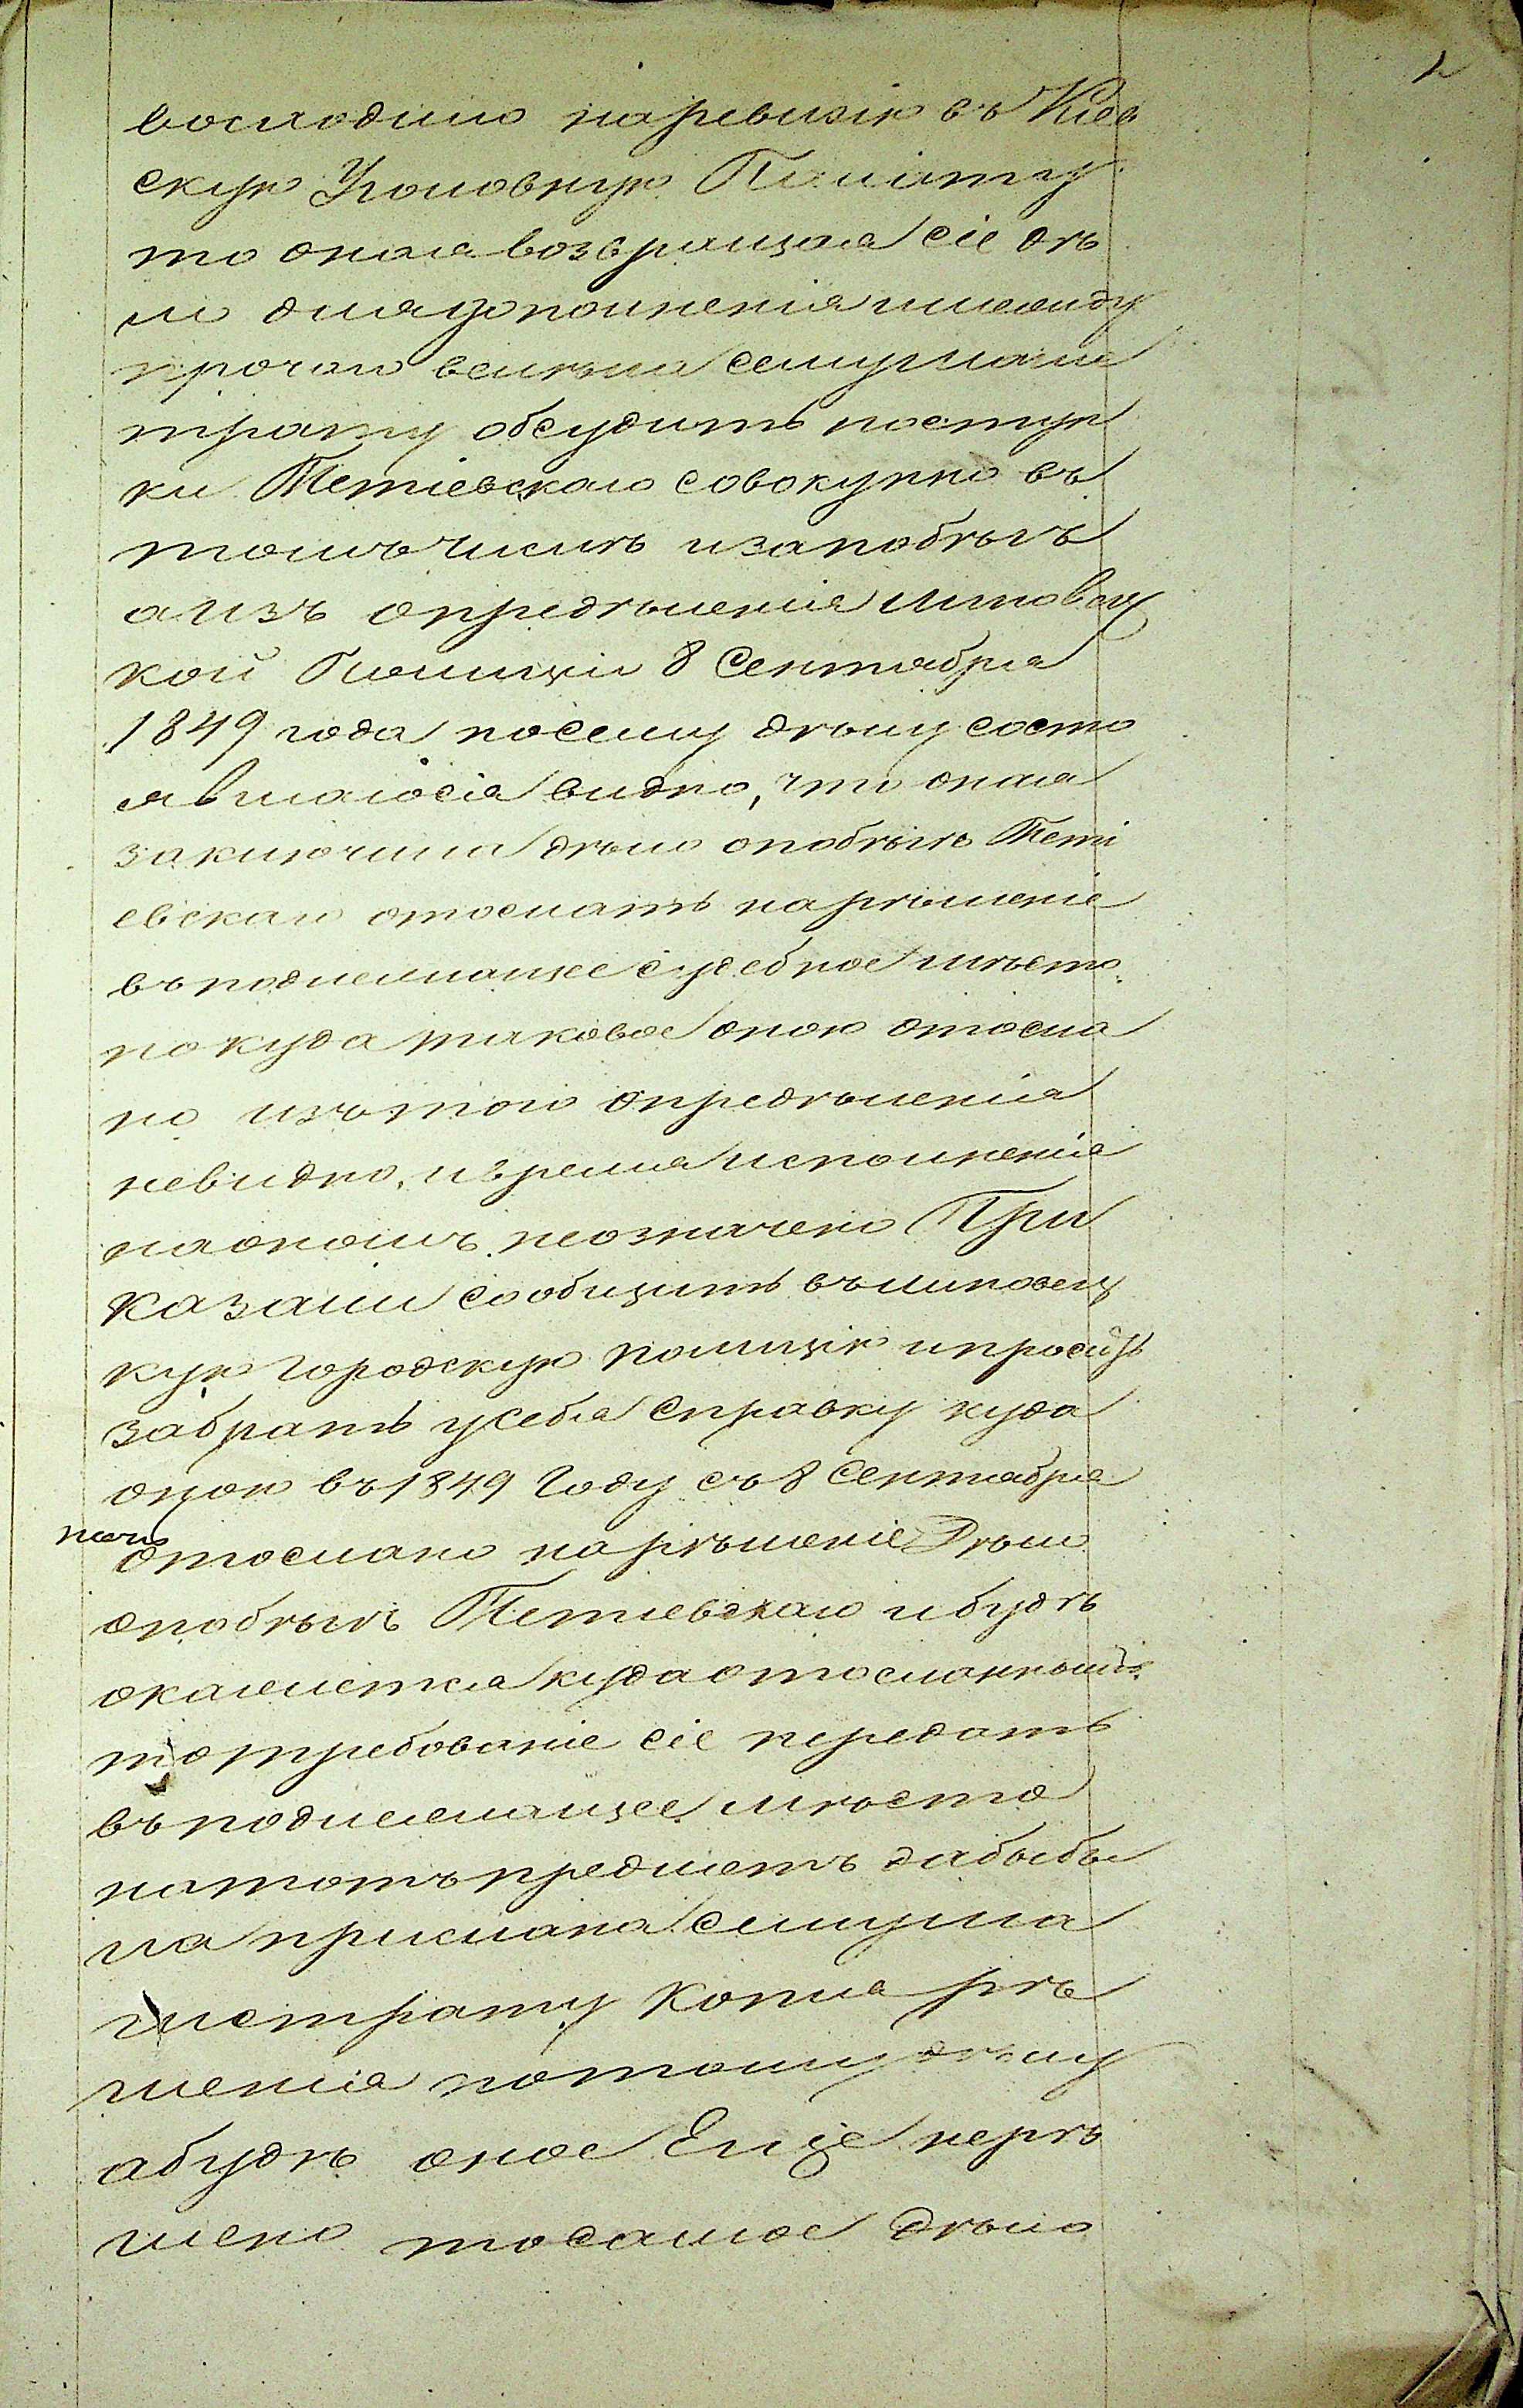 восходило на ревизію въ Кіев
скую Уголовную Палату
то оная возвращая сіе дѣ
ло для дополненія и между
прочаго велѣла сему Маги
трату обсудить поступ
ки Тетіевскаго совокупно въ
томъ числѣ и за побѣгъ
а изъ опредѣленія Липовец
кой Полиціи 8 Сентября
1849 года по сему дѣлу состо
явшагося видно, что оная
заключила дѣло о побѣгѣ Тети
евскаго отослать на рѣшеніе
въ подлежащее судебное мѣсто.
но куда таковое оною отосла
но изъ того опредѣленія
не видно, и время исполненія
на ономъ не означено При
казали сообщить въ Липовец
кую Городскую полицію и просить
забрать у себя справку куда
оною въ 1849 Году съ 8 Сентября
отослано на рѣшеніе Дѣло
о побѣгѣ Тетиевскаго и будѣ
окажется куда отосланнымъ
то требованіе сіе передать
въ подлежащее мѣсто
на тотъ предметъ дабы бы
ла прислана сему ма
гистрату копия рѣ
шения по тому дѣлу
а будѣ оное Еще не рѣ
шено то самое дѣло